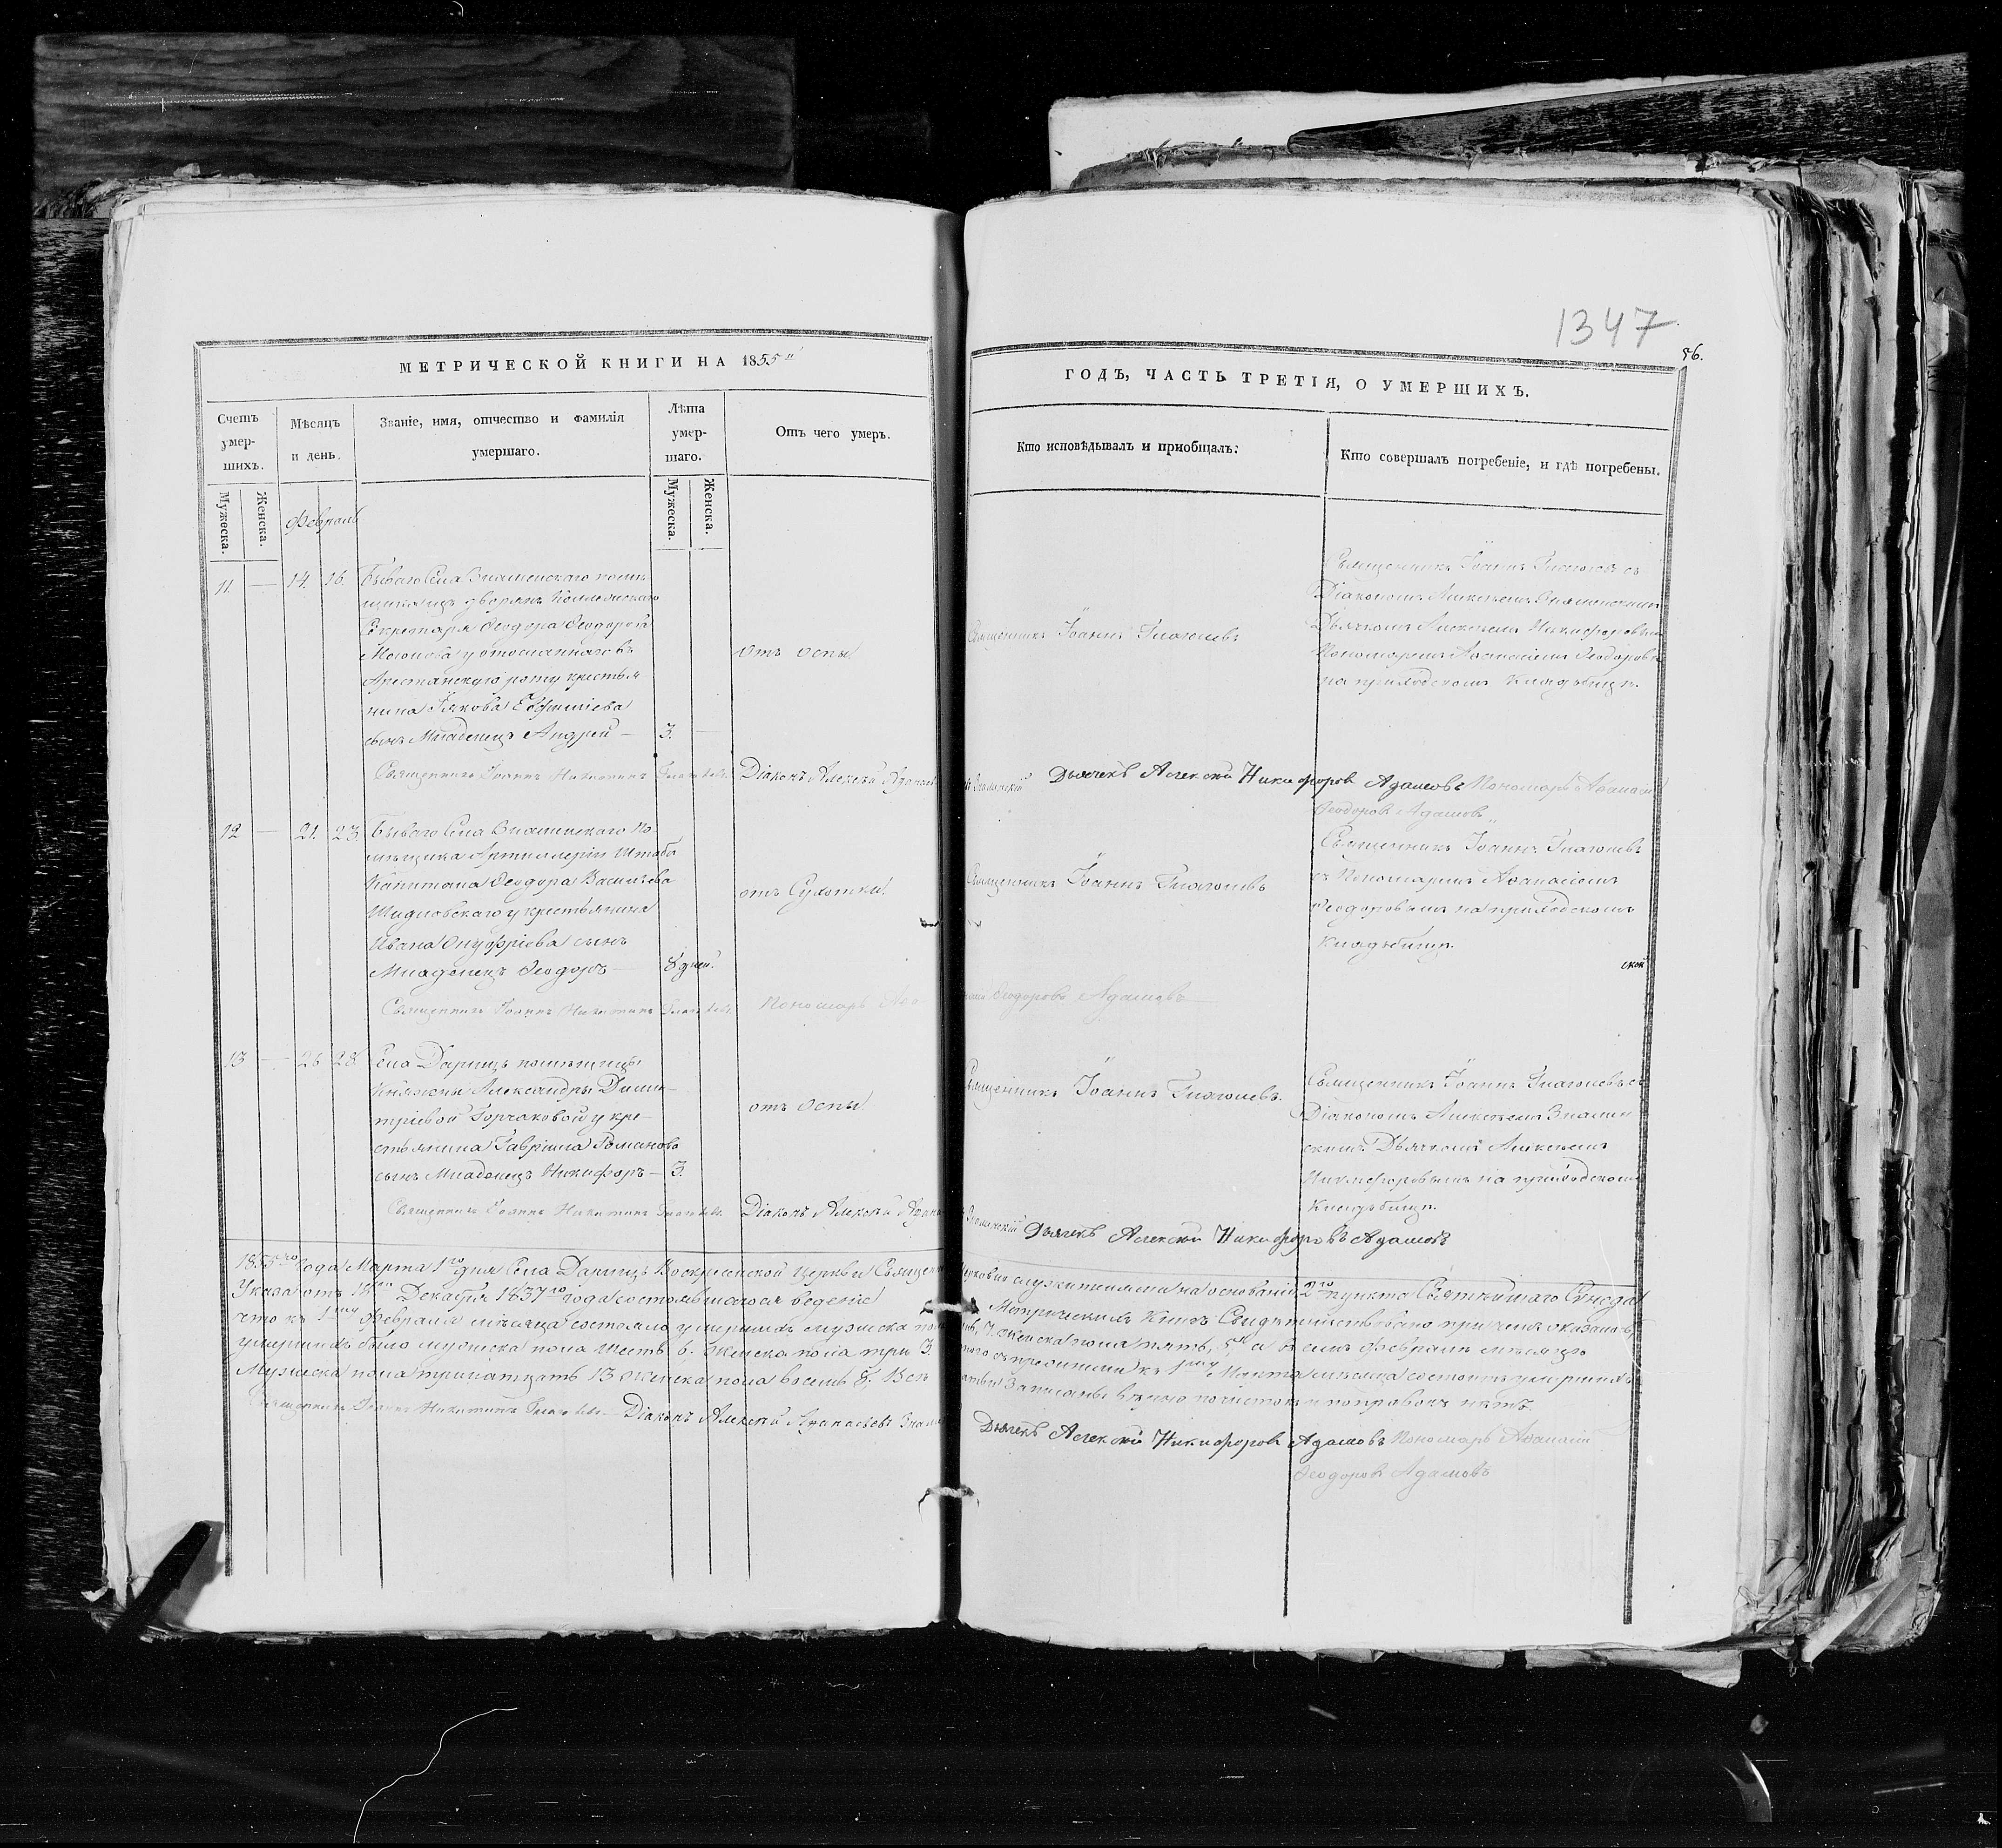 1347
56.
МЕТРИЧЕСКОЙ КНИГИ НА 1855й
ГОДЪ, ЧАСТЬ ТРЕТІЯ, О УМЕРШИХЪ.
Счетъ умер-шихъ.
Мѣсяцъ и день.
Званіе, имя, отчество и фамилія умершаго.
Лѣта умер-шаго.
Отъ чего умеръ.
Кто исповѣдывалъ и пріобщалъ:
Кто совершалъ погребеніе, и гдѣ погребены.
Мужеска.
Женска.
Мужеска.
Женска.
Февраль
11. — 14. 16.
Бываго Села Знаменскаго помѣ
щика изъ дворянъ Коллежскаго
Секретаря Ѳеодора Ѳеодорова
у отосланнаго въ
Арестанскую роту крестья
нина Іякова Евфиміева
сынъ Младенецъ Андрей — 3. —
отъ оспы
Священникъ Іоаннъ Глаголевъ
Священникъ Іоаннъ Глаголевъ съ
Діакономъ Алексѣемъ Знаменскимъ
Дьячкомъ Алексѣемъ Никифоровымъ
Пономаремъ Аѳанасіемъ Ѳеодоровы
на приходскомъ Кладбищѣ.
Священникъ Іоаннъ Никитинъ Глаголевъ. Діаконъ Алексѣй Аѳанасьевъ Знаменскій Дьячекъ Алексѣй Никифоровъ Адамовъ Пономарь Аѳанасій
Ѳеодоровъ Адамовъ
12 — 21. 23.
Бываго Села Знаменскаго По
мѣщика Артиллеріи Штабъ
Капитана Ѳеодора Васильева
Шидловскаго у крестьянина
Ивана Онуфріева сынъ
Младенецъ Ѳеодоръ — 8 дней.
отъ Сухотки
Священникъ Іоаннъ Глаголевъ
Священникъ Іоаннъ Глаголевъ
съ Пономаремъ Аѳанасіемъ
Ѳеодоровымъ на приходскомъ
Кладбищѣ.
Священникъ Іоаннъ Никитинъ Глаголевъ. Пономарь Аѳанасій Ѳеодоровъ Адамовъ
13 — 26 28
Села Дарищъ помѣщицы
Княжны Александры Дими
тріевой Горчаковой у кре
стьянина Гавріила Романова
сынъ Младенецъ Никифоръ — 3.
отъ Оспы
Священникъ Іоаннъ Глаголевъ.
Священникъ Іоаннъ Глаголевъ съ
Діакономъ Алексѣемъ Знамен
скимъ Дьячкомъ Алексѣемъ
Никифоровымъ на приходскомъ
Кладбищѣ.
Священникъ Іоаннъ Никитинъ Глаголевъ. Діаконъ Алексѣй Аѳанасьевъ Знаменскій Дьячекъ Алексѣй Никифоровъ Адамовъ
1855го года Марта 1го дня Села Дарищъ Воскресенской Церкви Священно Церковно служителями на основаніи 2го пункта Святѣйшаго Сѵнода
Указа отъ Декабря 1837го года состоявшагося веденіе Метрическихъ Книгъ Свидѣтельствовано при чемъ оказалось,
что къ 1му Февраля мѣсяца состояло умершихъ мужеска пола 7. женска пола пять, 5, а въ семъ Февралѣ мѣсяцѣ
умершихъ было мужеска пола шесть 6. женска пола три 3. къ 1му Марта мѣсяца состоитъ умершихъ
Мужеска пола тринатцать 13 женска пола восемь 8. Всѣ Записаны вѣрно почистокъ и поправокъ нѣтъ.
Священникъ Іоаннъ Никитинъ Глаголевъ — Діаконъ Алексѣй Аѳанасьевъ Дьячекъ Алексѣй Никифоровъ Адамовъ Пономарь Аѳанасій
Ѳеодоровъ Адамовъ